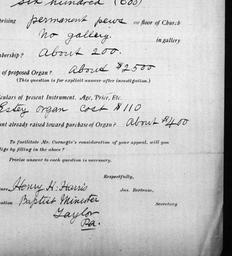 six hundred (600)
rising permanent pews on floor of Church
No gallery. in gallery
mbership? About 200.
of proposed Organ? About $2500
(This question is for explicit answer after investigation.)
culars of present Instrument. Age, Price, Etc.
Estey organ cost $110
unt already raised toward purchase of Organ? About $400
To facilitate Mr. Carnegie's consideration of your appeal, will you
lige by filling in the above?
Precise answer to each question is necessary.
Respectfully,
Henry H. Harris Jas. Bertram,
ation Baptist Minister Secretary
Taylor
Pa.